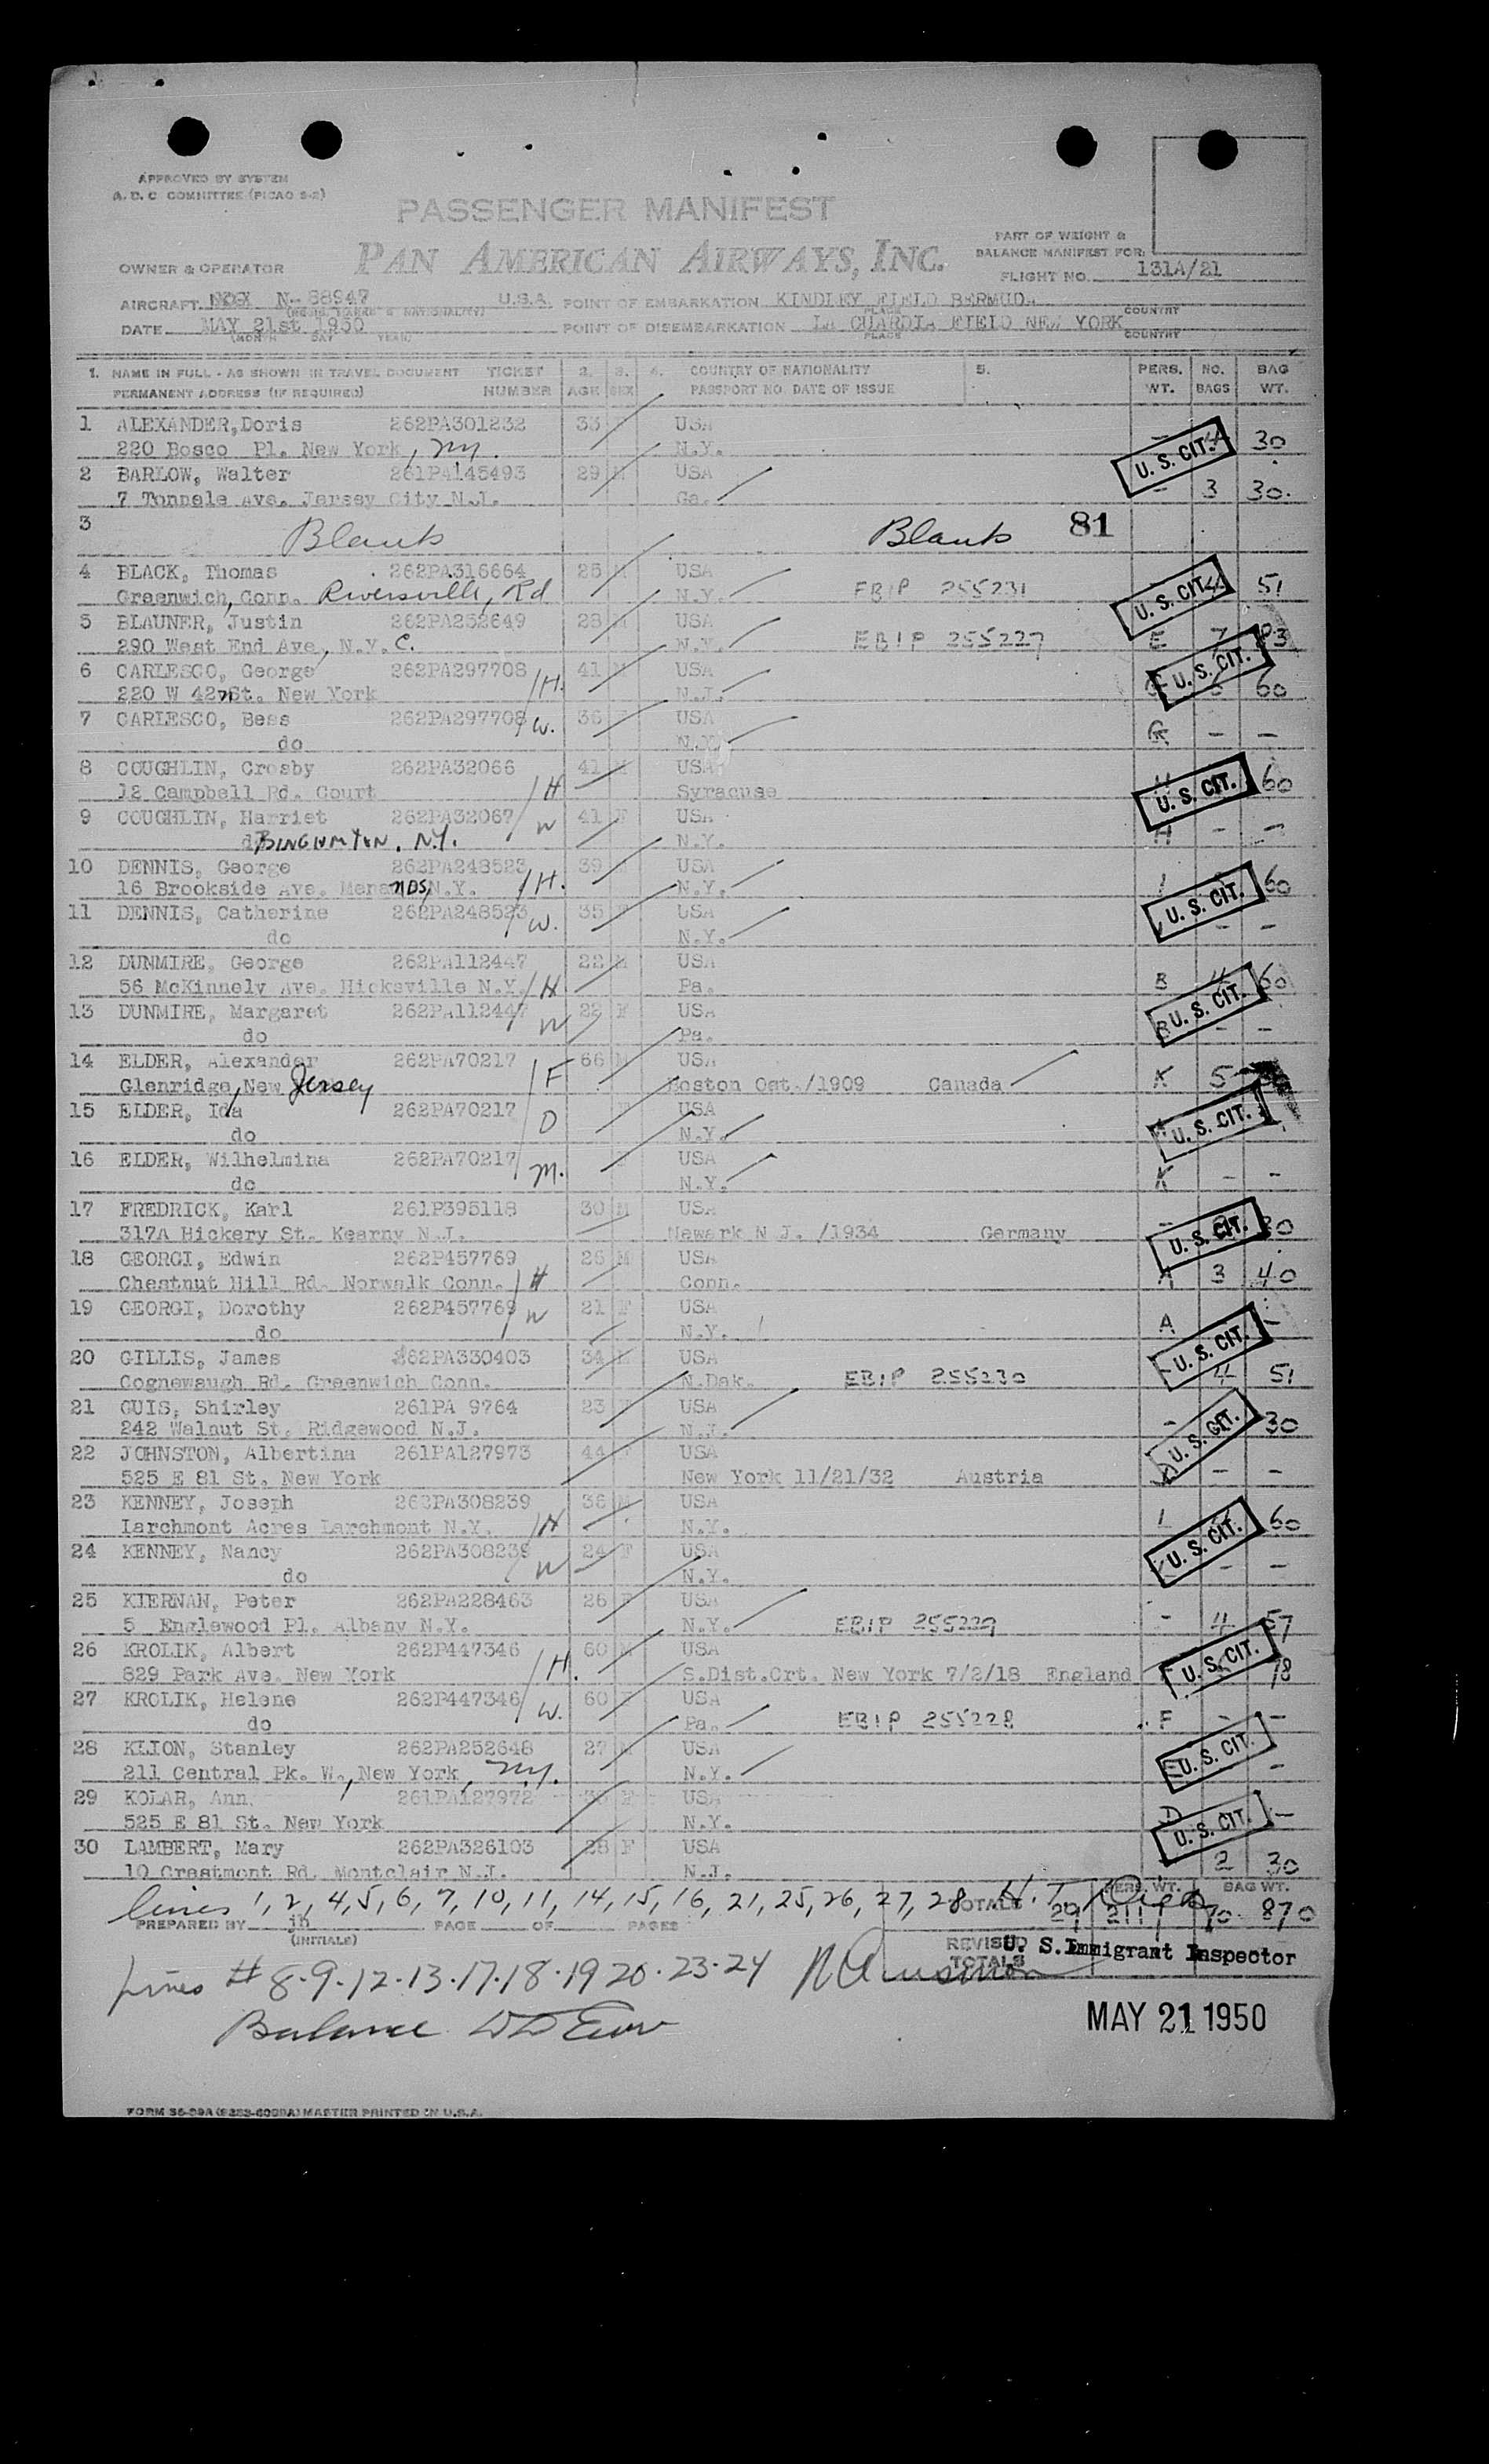 APPROVED BY SYSTEM
A. D. C COMMITTEE (PICAO 5-2)
PASSENGER MANIFEST
PAN AMERICAN AIRWAYS, INC.
PART OF WEIGHT &
BALANCE MANIFEST FOR:
OWNER & OPERATOR
FLIGHT NO. 131A/21
AIRCRAFT N-88947 U.S.A. POINT OF EMBARKATION KINDLEY FIELD BERMUDA
PLACE COUNTRY
DATE MAY 21st 1950 POINT OF DISEMBARKATION LA GUARDIA FIELD NEW YORK
(MONTH DAY YEAR) PLACE COUNTRY
1. NAME IN FULL - AS SHOWN IN TRAVEL DOCUMENT TICKET 2. 3. 4. COUNTRY OF NATIONALITY 5. PERS. NO. BAG
PERMANENT ADDRESS (IF REQUIRED) NUMBER AGE SEX PASSPORT NO. DATE OF ISSUE WT. BAGS WT.
1 ALEXANDER, Doris 262PA301232 USA
220 Bosco Pl. New York, NY. N.Y. U. S. CIT. 30
2 BARLOW, Walter 261PA145493 29 M USA
7 Tonnele Ave. Jersey City N.J. Ga. - 3 30.
3 Blank Blank 81
4 BLACK, Thomas 262PA316664 25 M USA
Greenwich, Conn. Riversville, Rd N.Y. EBIP 255231 U. S. CIT. 4 51
5 BLAUNER, Justin 262PA252649 28 M USA
290 West End Ave, N.Y. C. N.Y. EBIP 255227 E 7 83
6 CARLESCO, George 262PA297708 41 M USA
220 W 42 St. New York /H. N.J. U. S. CIT. 60
7 CARLESCO, Bess 262PA297708 /W. 36 F USA
do N.Y. G - -
8 COUGHLIN, Crosby 262PA32066 41 M USA
12 Campbell Rd. Court /H Syracuse U. S. CIT. 60
9 COUGHLIN, Harriet 262PA32067 /W 41 F USA
do BINGHAMTON, N.Y. N.Y. H - -
10 DENNIS, George 262PA248523 39 M USA
16 Brookside Ave. MenaNDS, N.Y. /H. N.Y. 60
11 DENNIS, Catherine 262PA248523 /W. 35 F USA U. S. CIT.
do N.Y. - -
12 DUNMIRE, George 262PA112447 22 M USA
56 McKinnely Ave. Hicksville N.Y. /H Pa. B 4 60
13 DUNMIRE, Margaret 262PA112447 /W 22 F USA U. S. CIT.
do Pa. B - -
14 ELDER, Alexander 262PA70217 66 M USA
Glenridge, New Jersey /F Boston Oct./1909 Canada K 5
15 ELDER, Ida 262PA70217 /D F USA
do N.Y. U. S. CIT.
16 ELDER, Wilhelmina 262PA70217 /M. F USA
do N.Y. K - -
17 FREDRICK, Karl 261P395118 30 M USA
317A Hickery St. Kearny N.J. Newark N J. /1934 Germany - U. S. CIT.
18 GEORGI, Edwin 262P457769 25 M USA
Chestnut Hill Rd. Norwalk Conn. /H Conn. A 3 40
19 GEORGI, Dorothy 262P457769 /W 21 F USA
do N.Y. A -
20 GILLIS, James 262PA330403 34 M USA U. S. CIT.
Cognewaugh Rd. Greenwich Conn. N.Dak. EBIP 255230 4 51
21 GUIS, Shirley 261PA 9764 23 F USA
242 Walnut St. Ridgewood N.J. N.J. - U. S. CIT. 30
22 JOHNSTON, Albertina 261PA127973 44 F USA
525 E 81 St. New York New York 11/21/32 Austria D - -
23 KENNEY, Joseph 262PA308239 36 M USA
Larchmont Acres Larchmont N.Y. /H N.Y. L 60
24 KENNEY, Nancy 262PA308239 /W 24 F USA U. S. CIT.
do N.Y. - -
25 KIERNAN, Peter 262PA228463 26 USA
5 Englewood Pl. Albany N.Y. N.Y. EBIP 255229 - 4 57
26 KROLIK, Albert 262P447346 60 M USA
829 Park Ave. New York /H. S.Dist.Crt. New York 7/2/18 England U. S. CIT. 78
27 KROLIK, Helene 262P447346 /W. 60 F USA
do Pa. EBIP 255228 F - -
28 KLION, Stanley 262PA252648 27 M USA
211 Central Pk. W., New York, N.Y. N.Y. E U. S. CIT. -
29 KOLAR, Ann. 261PA127972 F USA
525 E 81 St. New York N.Y. D -
30 LAMBERT, Mary 262PA326103 28 F USA U. S. CIT.
10 Crestmont Rd. Montclair N.J. N.J. 2 30
lines 1, 2, 4, 5, 6, 7, 10, 11, 14, 15, 16, 21, 25, 26, 27, 28 TOTALS 29 PERS. WT. 70 BAG WT. 870
PREPARED BY jh PAGE OF PAGES
(INITIALS)
REVISED TOTALS U. S. Immigrant Inspector
Lines # 8-9-12-13-17-18-19 20-23-24
Balance
MAY 21 1950
FORM 36-99A MASTER PRINTED IN U.S.A.